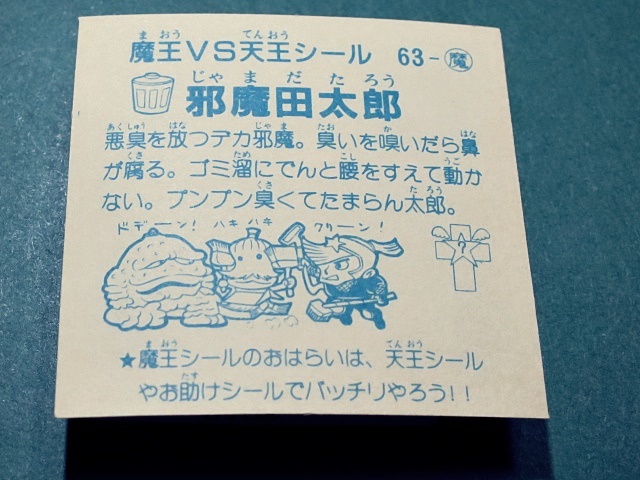 魔王VS天王シール 63-魔
邪魔田太郎
悪臭を放つデカ邪魔。臭いを嗅いだら鼻
が腐る。ゴミ溜にでんと腰をすえて動か
ない。プンプン臭くてたまらん太郎。
ドデーン! ハキハキ クリーン!
★魔王シールのおはらいは、天王シール
やお助けシールでバッチリやろう!!